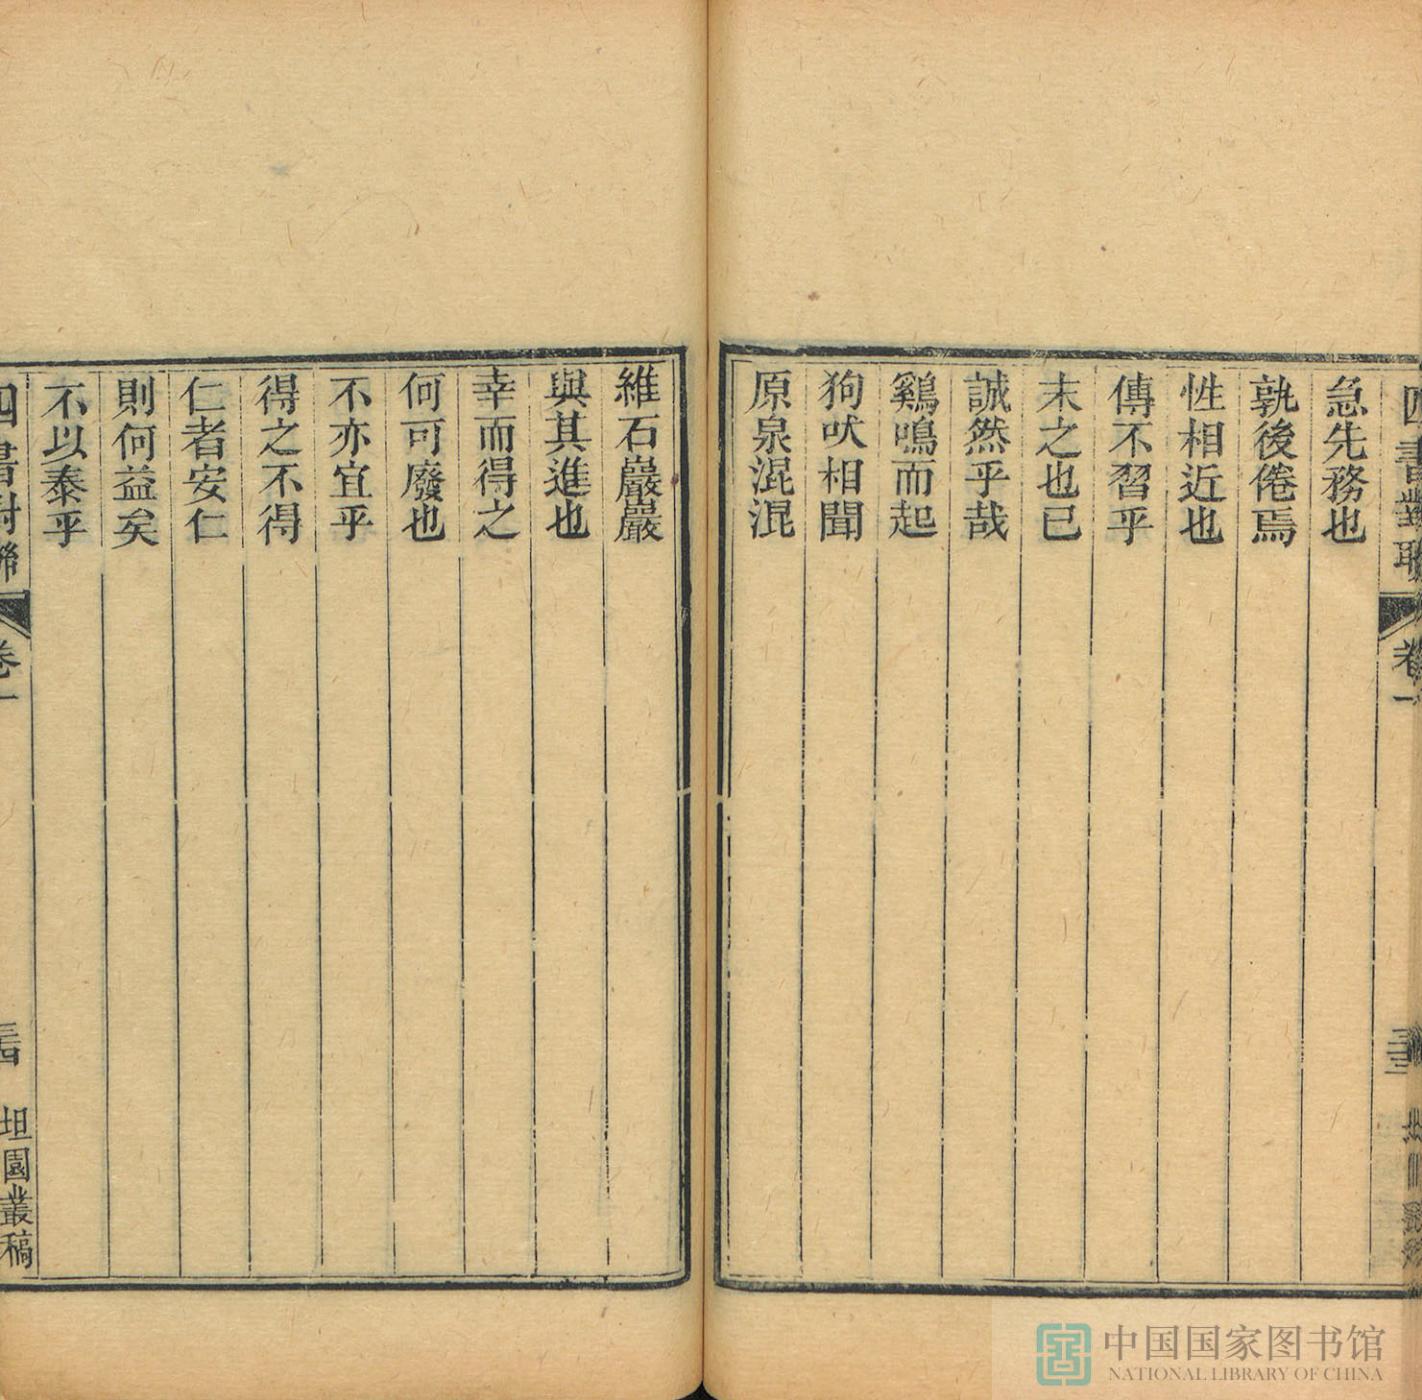 四書對聯 卷一
急先務也
孰後倦焉
性相近也
傳不習乎
末之也已
誠然乎哉
鷄鳴而起
狗吠相聞
原泉混混
維石巖巖
與其進也
幸而得之
何可廢也
不亦宜乎
得之不得
仁者安仁
則何益矣
不以泰乎
四書對聯 卷一 三四 坦園叢稿
中国国家图书馆
NATIONAL LIBRARY OF CHINA